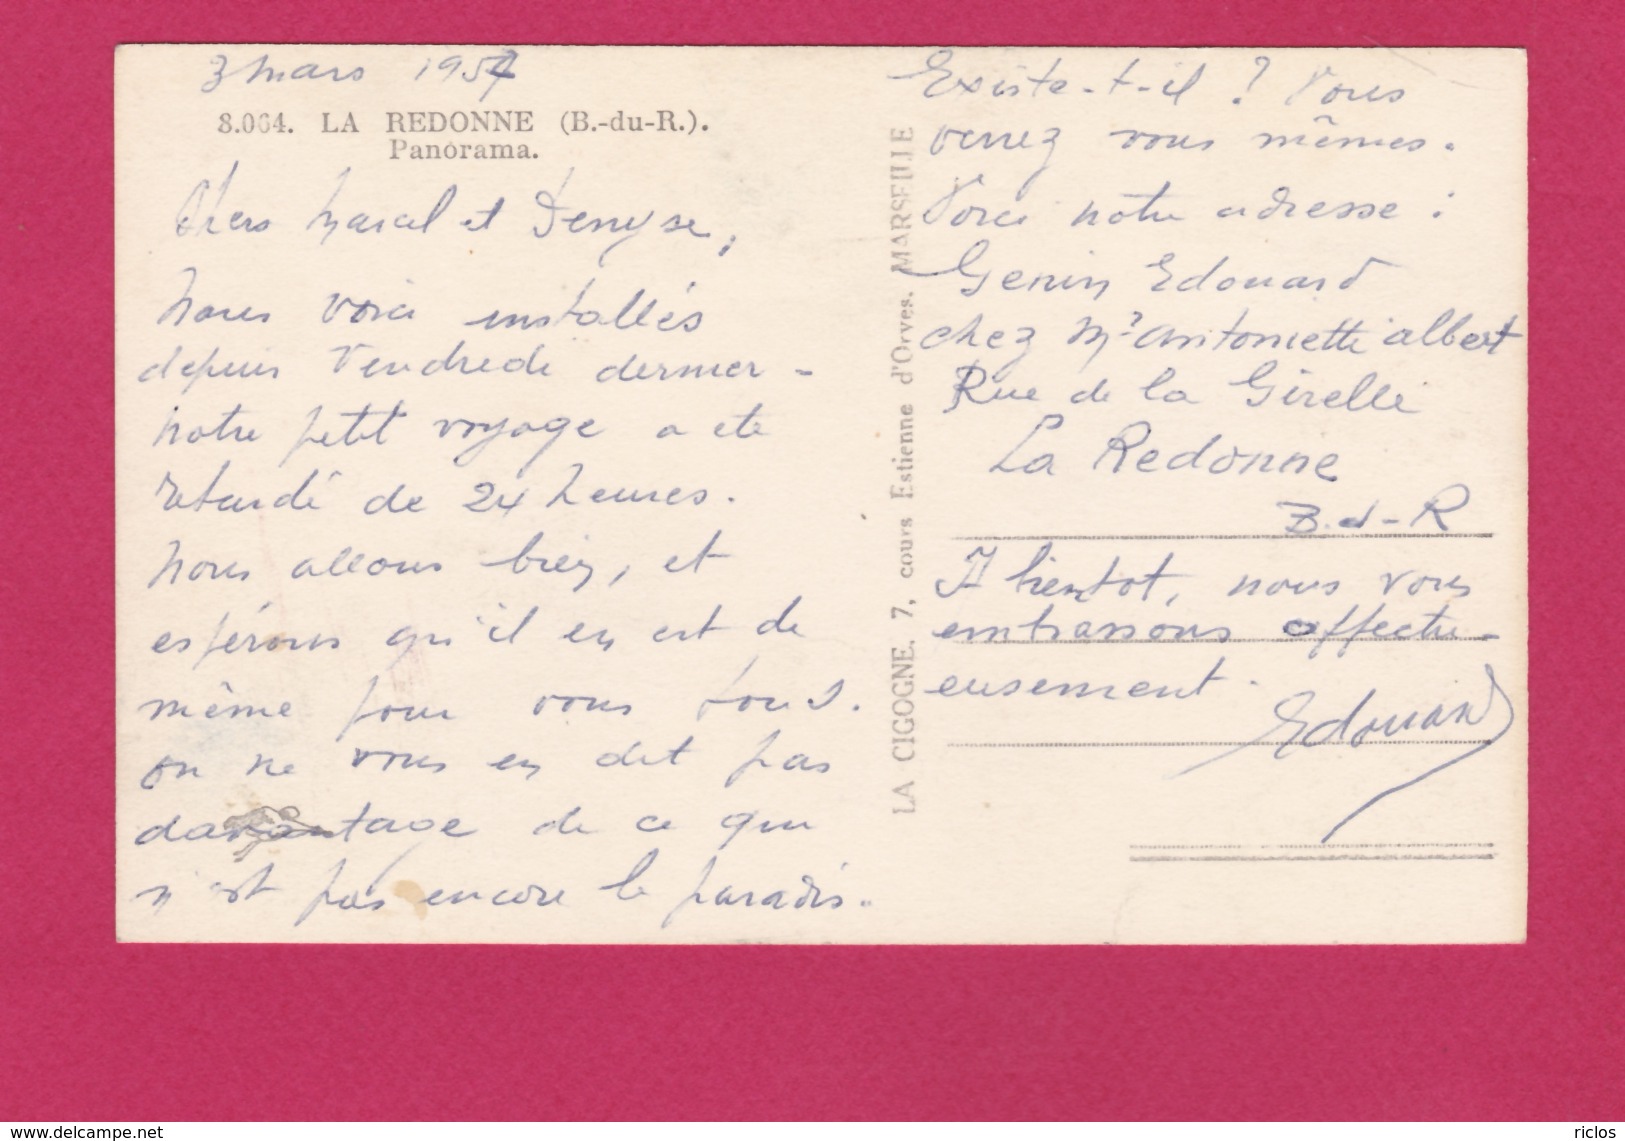 3 mars 1957
8.064. LA REDONNE (B.-du-R.).
Panorama.
Chers Marcel et Denyse,
Nous voici installés
depuis Vendredi dernier -
notre petit voyage a été
retardé de 24 heures.
Nous allons bien, et
espérons qu'il en est de
même pour vous tous.
on ne vous en dit pas
davantage de ce qui
n'est pas encore le paradis.
LA CIGOGNE. 7, cours Estienne d'Orves. MARSEILLE
Existe-t-il ? Vous
verrez vous mêmes.
Voici notre adresse :
Genin Edouard
chez Mr Antoniette albert
Rue de la Girelle
La Redonne
B.d-R
A bientot, nous vous
embrassons affectu-
eusement.
Edouard
www.delcampe.net
riclos